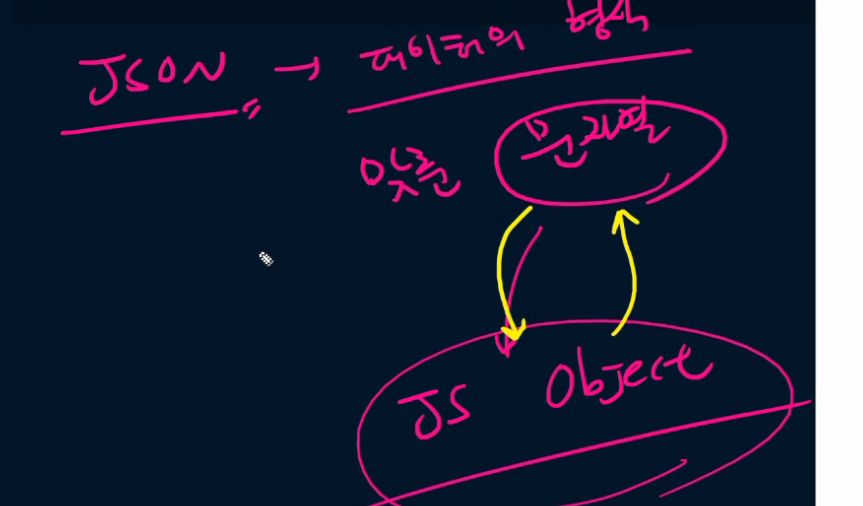 JSON → 데이터의 형식
맞춘 문자열
JS Object